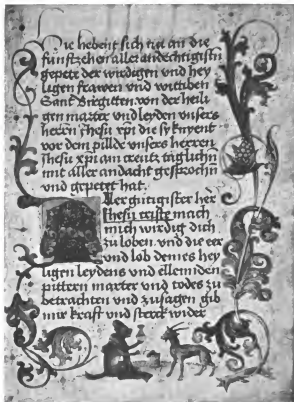 Hie hebent sich nu an die
funftzehen aller andechtigistn
gepete der wirdigen vnd hey
ligen frawen vnd wittiben
Sant Brigitten von der heili
gen marter vnd leyden vnsers
herrn ihesu xpi die sy knyent
vor dem pillde vnsers herren
ihesu xpi am creutz täglichn
mit aller andacht gesprochn
vnd gepetet hat.
Aller gütigister her
ihesu criste mach
mich wirdig dich
zu loben vnd die eer
vnd lob deines hey
ligen leydens vnd ellenniden
pittern marter vnd todes zu
betrachten vnd zusagen gib
mir kraft vnd sterck wider